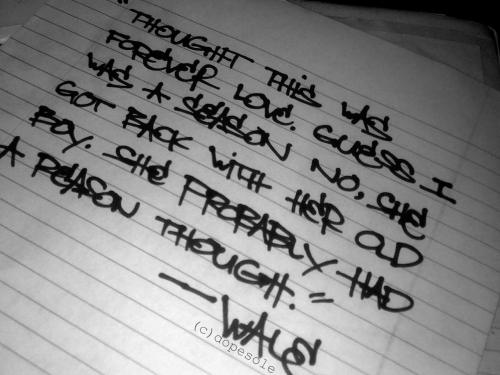 "THOUGHT THIS WAS
FOREVER LOVE. GUESS I
WAS A SEASON NO, SHE
GOT BACK WITH HER OLD
BOY. SHE PROBABLY HAD
A REASON THOUGH."
— WALE
(c)dopesole